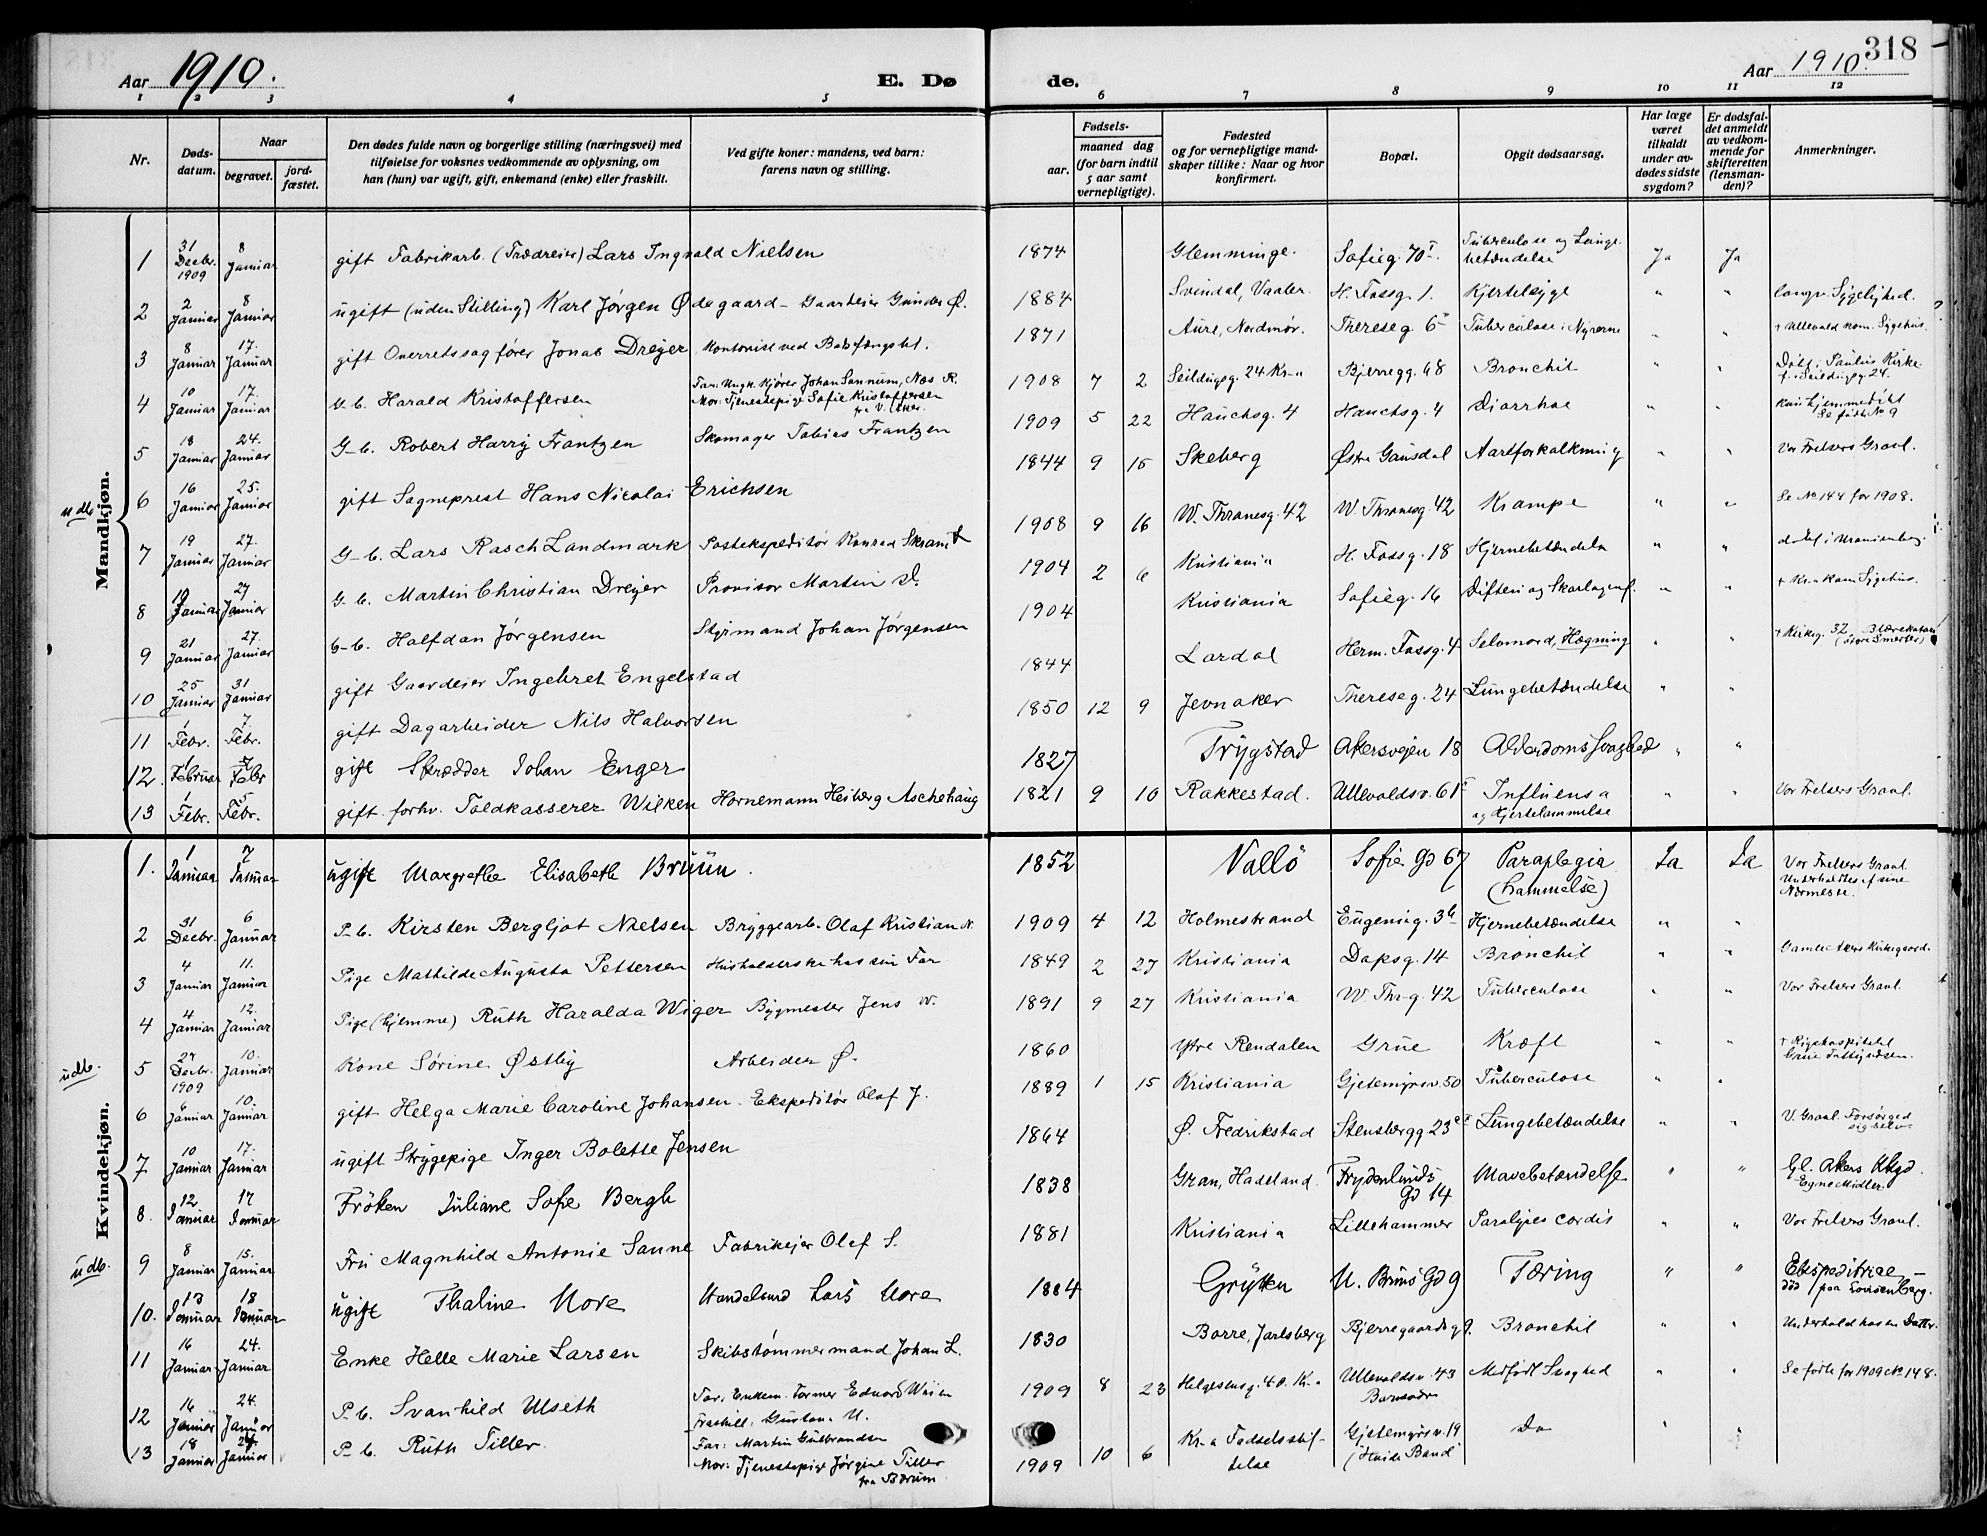 318
Aar 1910. E. Dø
de. Aar 1910.
1 2 3 4 5 6 7 8 9 10 11 12
Nr.
Døds-
datum.
Naar
begravet.
jord-
fæstet.
Den dødes fulde navn og borgerlige stilling (næringsvei) med
tilføielse for voksnes vedkommende av oplysning, om
han (hun) var ugift, gift, enkemand (enke) eller fraskilt.
Ved gifte koner: mandens, ved barn:
farens navn og stilling.
Fødsels-
aar.
maaned dag
(for barn indtil
5 aar samt
vernepligtige).
Fødested
og for vernepligtige mand-
skaper tillike: Naar og hvor
konfirmert.
Bopæl.
Opgit dødsaarsag.
Har læge
været
tilkaldt
under av-
dødes sidste
sygdom?
Er dødsfal-
det anmeldt
av vedkom-
mende for
skifteretten
(lensman-
den)?
Anmerkninger.
Mandkjøn.
1 31 Decbr. 1909 8 Januar gift Fabrikarb. (Trædreier) Lars Ingvald Nielsen 1874 Glemminge. Sofieg. 70 I. Tuberculose og Lunge-
betændelse Ja Ja
2 2 Januar 8 Januar ugift (uden Stilling) Karl Jørgen Ødegaard - Gaardeier Gunder Ø. 1884 Svindal, Vaaler. H. Fossg. 1. Kjertelsyge " " langv. Sygelighed.
3 8 Januar 17. Januar gift Overretssagfører Jonas Dreyer Kontorist ved Bodsfængslet. 1871 Aure, Nordmør. Thereseg. 6 Tuberculose i Nyrerne " " + Ullevold kom. Sygehus.
4 10 Januar 17. Januar u-b. Harald Kristoffersen Far: Ungk. Kjører Johan Sannum, Næs R.
Mor: Tjenestepige Sofie Kristoffersen
fra V. Aker. 1908 7 2 Seildugsg. 24 Kr-a Bjerregg. 68 Bronchit " " Døbt i Paulus Kirke
f. i Seildugsg 24.
5 18 Januar 24. Januar G-b. Robert Harry Frantzen Skomager Tobias Frantzen 1909 5 22 Hauchsg. 4 Hauchsg. 4 Diarrhoe " " kun hjemmedøbt
Se fødte No 9
udb. 6 16 Januar 25. Januar gift Sogneprest Hans Nicolai Erichsen 1844 9 15 Skeberg Østre Gausdal Aareforkalkning " " Vor Frelsers Gravl.
7 19 Januar 27. Januar G-b. Lars Rasch Landmark Postekspeditør Konrad Skramt 1908 9 16 W. Thranesg. 42 W. Thranesg. 42 Krampe " " Se No 144 for 1908.
8 19 Januar 27 Januar G-b. Martin Christian Dreyer Provisor Martin D. 1904 2 6 Kristiania H. Fossg. 18 Hjernebetændelse " " døbt i Uranienborg.
9 21 Januar 27. Januar G-b. Halfdan Jørgensen Styrmand Johan Jørgensen 1904 Kristiania Sofieg. 16 Difteri og Skarlagensf. " " + Kr.a kom Sygehus.
10 25 Januar 31 Januar gift Gaardeier Ingebret Engelstad 1844 Lardal Herm. Fossg. 4 Selvmord, Hægning " " + Kirkeg. 32
(store Smerter)
11 1 Febr. 7. Febr. gift Dagarbeider Nils Halvorsen 1850 12 9 Jevnaker Thereseg. 24 Lungebetændelse " "
12. 1 Februar 7 Febr gift Skrædder Johan Enger 1827 Trygstad Akersvejen 18 Alderdomssvaghed " "
13 1 Febr. 5 Febr. gift forhv. Toldkasserer Wilken Hornemann Heiberg Aschehoug 1821 9 10 Rakkestad. Ullevoldsv. 61 Influensa
og Hjertelammelse " " Vor Frelsers Gravl.
Kvindekjøn.
1. 1 Januar 7 Januar ugift Margrethe Elisabeth Bruun. 1852 Vallö Sofie Gd 67 Paraplegia
(Lammelse) Ja Ja Vor Frelsers Gravl.
Underholdtes af sine
Nærmeste.
2 31 Decbr. 6 Januar P-b. Kirsten Bergljot Nielsen Bryggearb. Olaf Kristian N. 1909 4 12 Holmestrand Eugenieg. 3b Hjernebetændelse " "
3 4 Januar 11. Januar Pige Mathilde Augusta Pettersen Husholderske hos sin Far 1849 2 27 Kristiania Dopsg. 14 Bronchit " " Gamle Akers Kirkegaard.
4 4 Januar 12. Januar Pige (hjemme) Ruth Haralda Wiger Bygmester Jens W. 1891 9 27 Kristiania W. Thr-g. 42 Tuberculose " " Vor Frelsers Gravl.
udb. 5 27 Decbr. 1909 10. Januar Kone Sørine Østby Arbeider Ø. 1860 Ytre Rendalen Grue Kræft " " + Rigshospitalet
Grue Fattigvæsen.
6 6 Januar 10. Januar gift Helga Marie Caroline Johansen. Ekspeditør Olaf J. 1889 1 15 Kristiania Gjetemyrsv. 50 Tuberculose " "
7 10 Januar 17. Januar ugift Strygepige Inger Bolette Jensen 1864 Ø. Fredrikstad Stensbergg 23 Lungebetændelse " " V. Gravl. Forsørged
sig selv
8. 12 Januar 17 Januar Fröken Juliane Sofie Bergh 1838 Gran, Hadeland. Frydenlunds
Gd 14 Mavebetændelse " " Gl. Akers Kkgd.
Egne Midler.
udb. 9 8 Januar 15. Januar Fru Magnhild Antonie Sanne Fabrikejer Olaf S. 1881 Kristiania Lillehammer Paralysis cordis " " Vor Frelsers Gravl.
10. 13 Januar 18 Januar ugift Thaline More Handelsmd Lars More 1884 Grytten U. Bruns Gd 9 Tæring " " Ekspeditrice -
död paa Lovisenberg.
11 16 Januar 24. Januar Enke Helle Marie Larsen Skibstømmermand Johan L. 1830 Borre, Jarlsberg Bjerregaardsg 9. Bronchit " " Underhold hos en Datter.
12 16 Januar 24. Januar P-b. Svanhild Ulseth Far: Enkem. Former Edvard Wiien
Fraskill: Gustava U. 1909 8 23 Helgesensg. 40. Kr-a Ullevoldsv. 43 Medfødt Svaghed " " Se fødte for 1909 No 148.
13 18 Januar 24. Januar P-b. Ruth Tiller. Far: Martin Gulbrandsen
Mor: Tjenestepige Jørgine Tiller
fra Bærum. 1909 10 6 Kr-a Fødselsstif-
telse Gjetemyrsv. 19
(Hvide Baand) Do " "